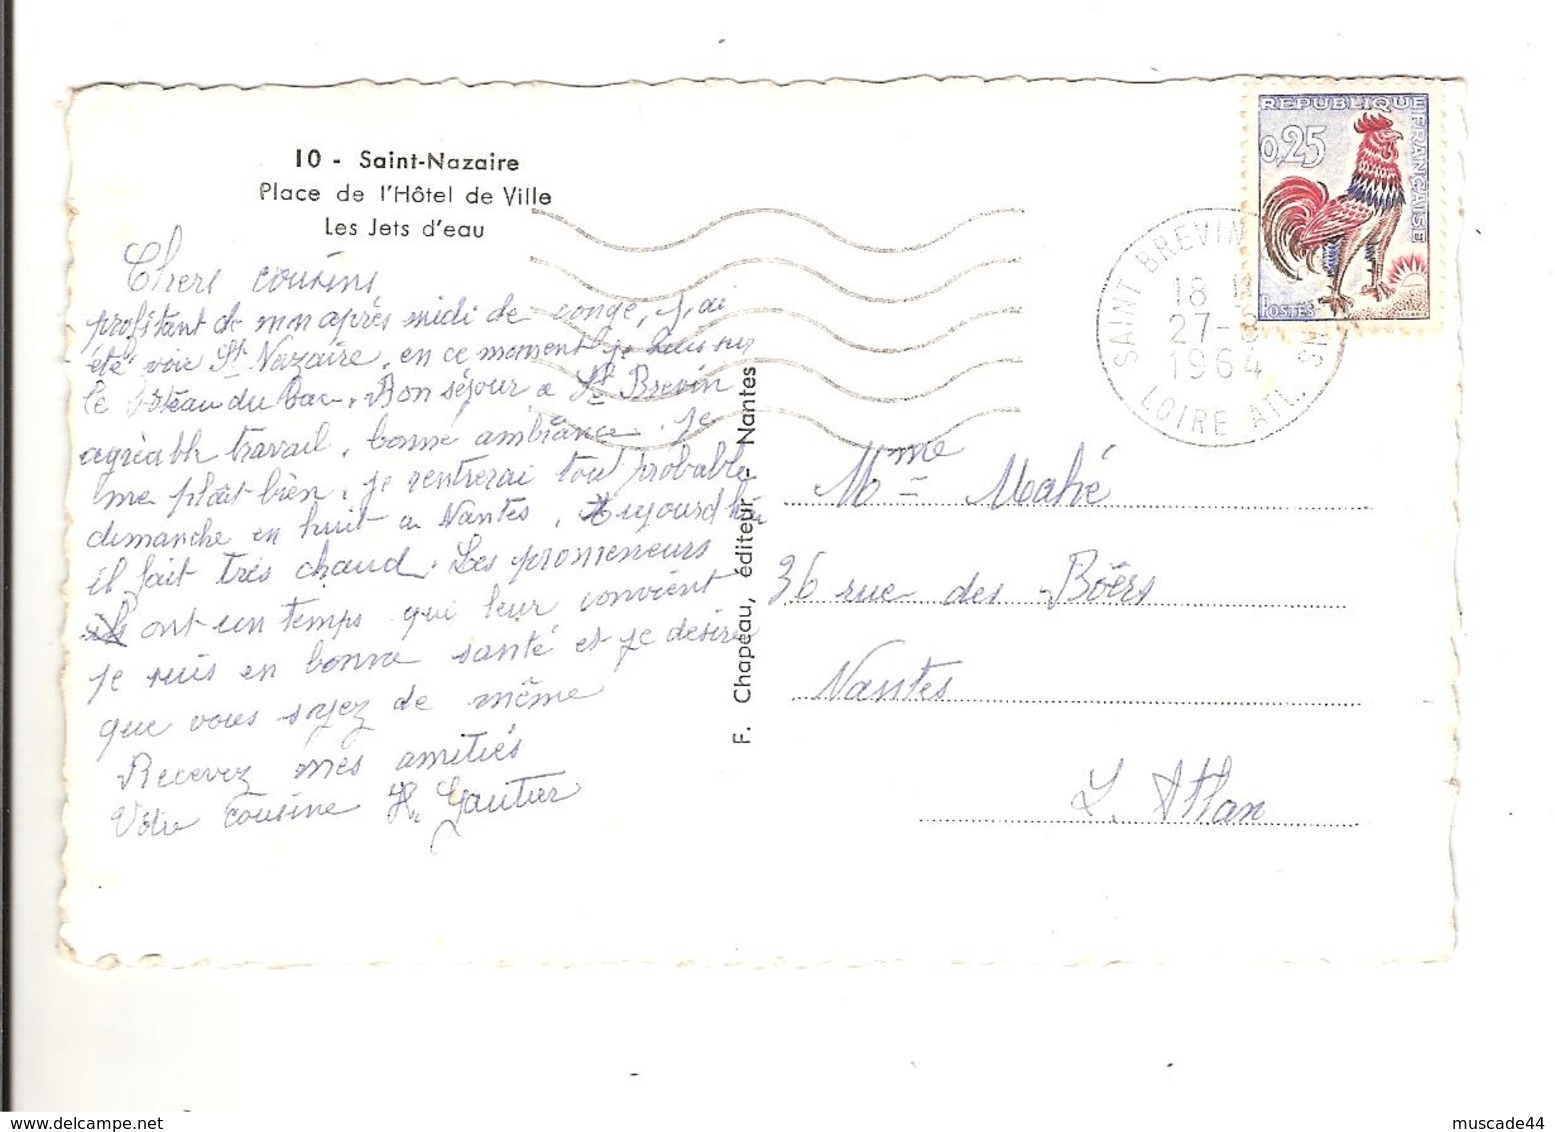 10 - Saint-Nazaire
Place de l'Hôtel de Ville
Les Jets d'eau
Chers cousins
profitant de mon après midi de conge, j'ai
été voir St Nazaire, en ce moment je suis sur
le bateau du bac. Bon séjour a St Brevin
agréabl travail, bonne ambiance. je
me plait bien. je rentrerai tout probable
dimanche en huit a Nantes. Aujourd'hui
il fait très chaud. Les promeneurs
ont un temps qui leur convient
je suis en bonne santé et je desire
que vous soyez de même
Recevez mes amitiés
Votre cousine H. Gautier
F. Chapeau, éditeur - Nantes
REPUBLIQUE FRANÇAISE
0,25
POSTES
SAINT BREVIN
18 H
27-
1964
LOIRE ATL.
Mme Mahé
36 rue des Böers
Nantes
L. Atlan
www.delcampe.net
muscade44